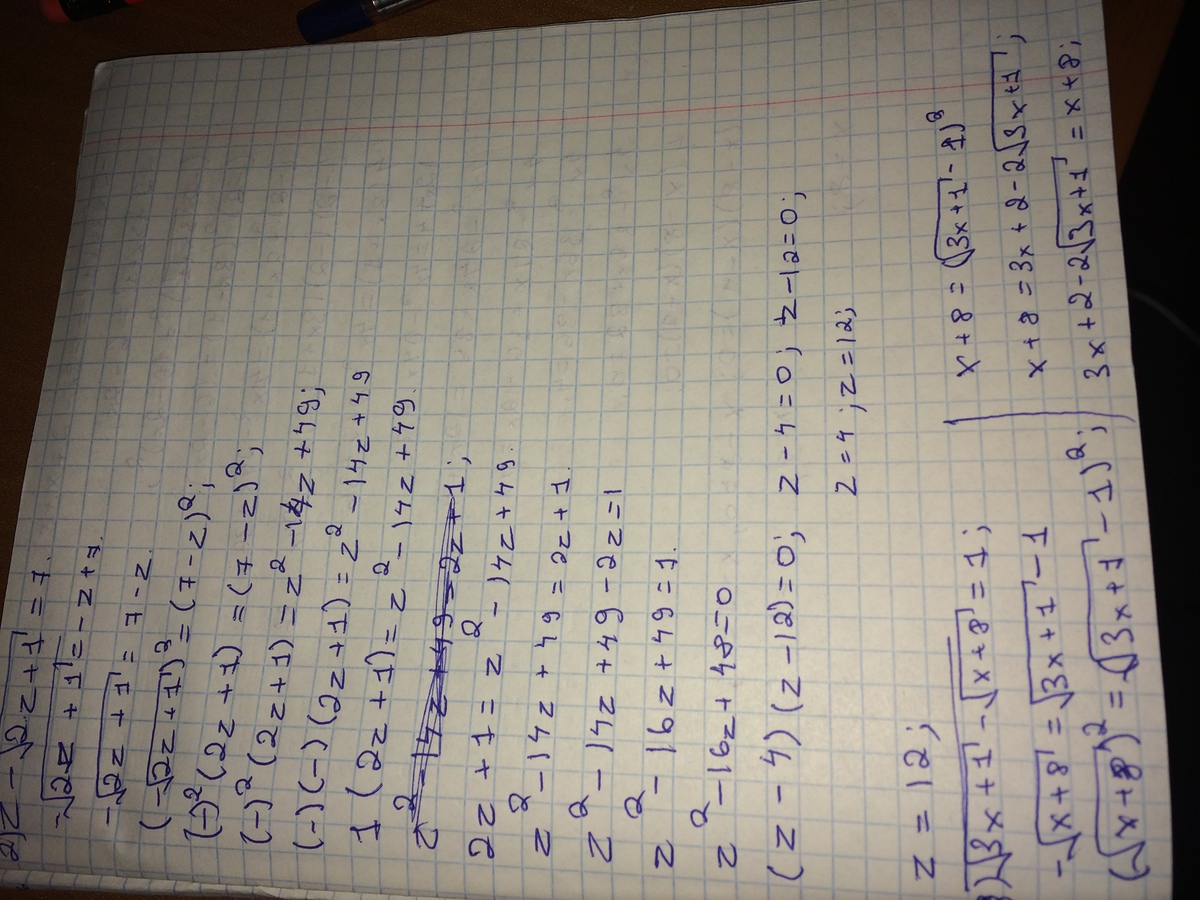 2) z - √2z+1 = 7.
-√2z+1 = -z+7.
-√2z+1 = 7-z.
(-√2z+1)² = (7-z)²;
(-)²(2z+1) = (7-z)²;
(-)²(2z+1) = z²-14z+49;
(-)(-)(2z+1) = z²-14z+49
1(2z+1) = z²-14z+49.
z²-14z+49=2z+1;
2z+1 = z²-14z+49.
z²-14z+49 = 2z+1.
z²-14z+49-2z=1
z²-16z+49=1.
z²-16z+48=0
(z-4)(z-12)=0; z-4=0; z-12=0;
z=4; z=12;
z=12;
3) √3x+1 - √x+8 = 1;
-√x+8 = √3x+1 - 1
(-√x+8)² = (√3x+1 - 1)²;
x+8 = (√3x+1 - 1)²
x+8 = 3x+2-2√3x+1;
3x+2-2√3x+1 = x+8;